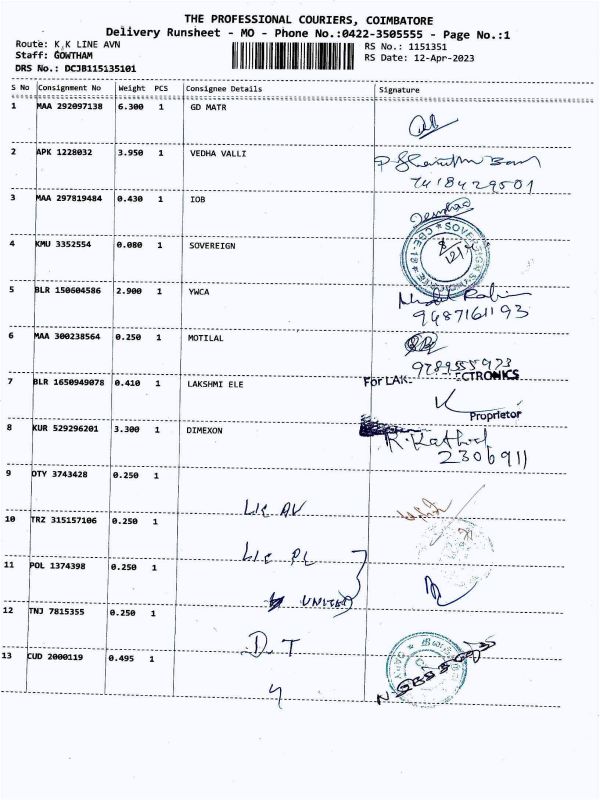 THE PROFESSIONAL COURIERS, COIMBATORE
Delivery Runsheet - MO - Phone No.:0422-3505555 - Page No.:1
Route: K,K LINE AVN
RS No.: 1151351
Staff: GOWTHAM
RS Date: 12-Apr-2023
DRS No.: DCJB115135101
S No Consignment No Weight PCS Consignee Details Signature
1 MAA 292097138 6.300 1 GD MATR
2 APK 1228032 3.950 1 VEDHA VALLI
7418429501
3 MAA 297819484 0.430 1 IOB
4 KMU 3352554 0.080 1 SOVEREIGN
CBE-18
5 BLR 150604586 2.900 1 YWCA
9487161193
6 MAA 300238564 0.250 1 MOTILAL
9789555923
7 BLR 1650949078 0.410 1 LAKSHMI ELE
For LAK ECTRONICS
Proprietor
8 KUR 529296201 3.300 1 DIMEXON
2306911
9 OTY 3743428 0.250 1
LIC AV
10 TRZ 315157106 0.250 1
LIC PL
11 POL 1374398 0.250 1
UNITED
12 TNJ 7815355 0.250 1
D T
13 CUD 2000119 0.495 1